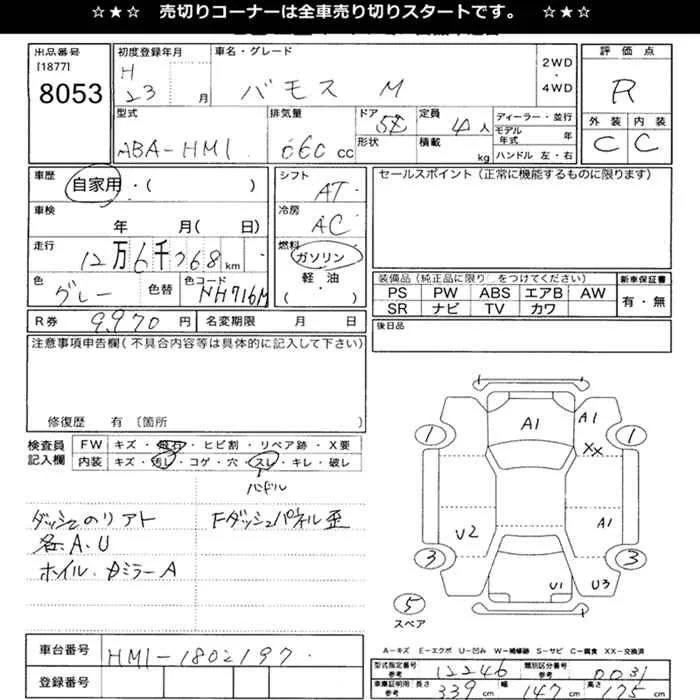 ☆★☆ 売切りコーナーは全車売り切りスタートです。 ☆★☆
出品番号
[1877]
8053
初度登録年月
H
23 月
車名・グレード
バモス M
2WD
・
4WD
評価点
R
外装 内装
C C
型式
ABA-HM1
排気量
060 cc
ドア
5
形状
定員
4人
積載
kg
ディーラー・並行
モデル年式 年
ハンドル 左・右
車歴
自家用・( )
車検
年 月( 日)
走行
12万6千268km
色
グレー
色替
色コード
NH716M
シフト
AT
冷房
AC
燃料
ガソリン
軽・油
( )
セールスポイント(正常に機能するものに限ります)
装備品(純正品に限り をつけてください)
PS PW ABS エアB AW
SR ナビ TV カワ
新車保証書
有・無
R券 9,970円
名変期限 月 日
後日品
注意事項申告欄(不具合内容等は具体的に記入して下さい)
修復歴 有〔箇所 〕
検査員
記入欄
FW キズ・飛石・ヒビ割・リペア跡・X要
内装 キズ・汚レ・コゲ・穴・スレ・キレ・破レ
ハンドル
ダッシュのリアト
Fダッシュパネル歪
各、A、U
ホイル、ドミラーA
A1
A1
XX
1
1
U2
A1
3
3
U1
U3
5
スペア
A-キズ E-エクボ U-凹み W-補修跡 S-サビ C-腐食 XX-交換済
車台番号
HM1-1802197
登録番号
型式指定番号
参考
12246
類別区分番号
参考
0031
車庫証明用
参考
長さ 339 cm
幅 147 cm
高さ 175 cm